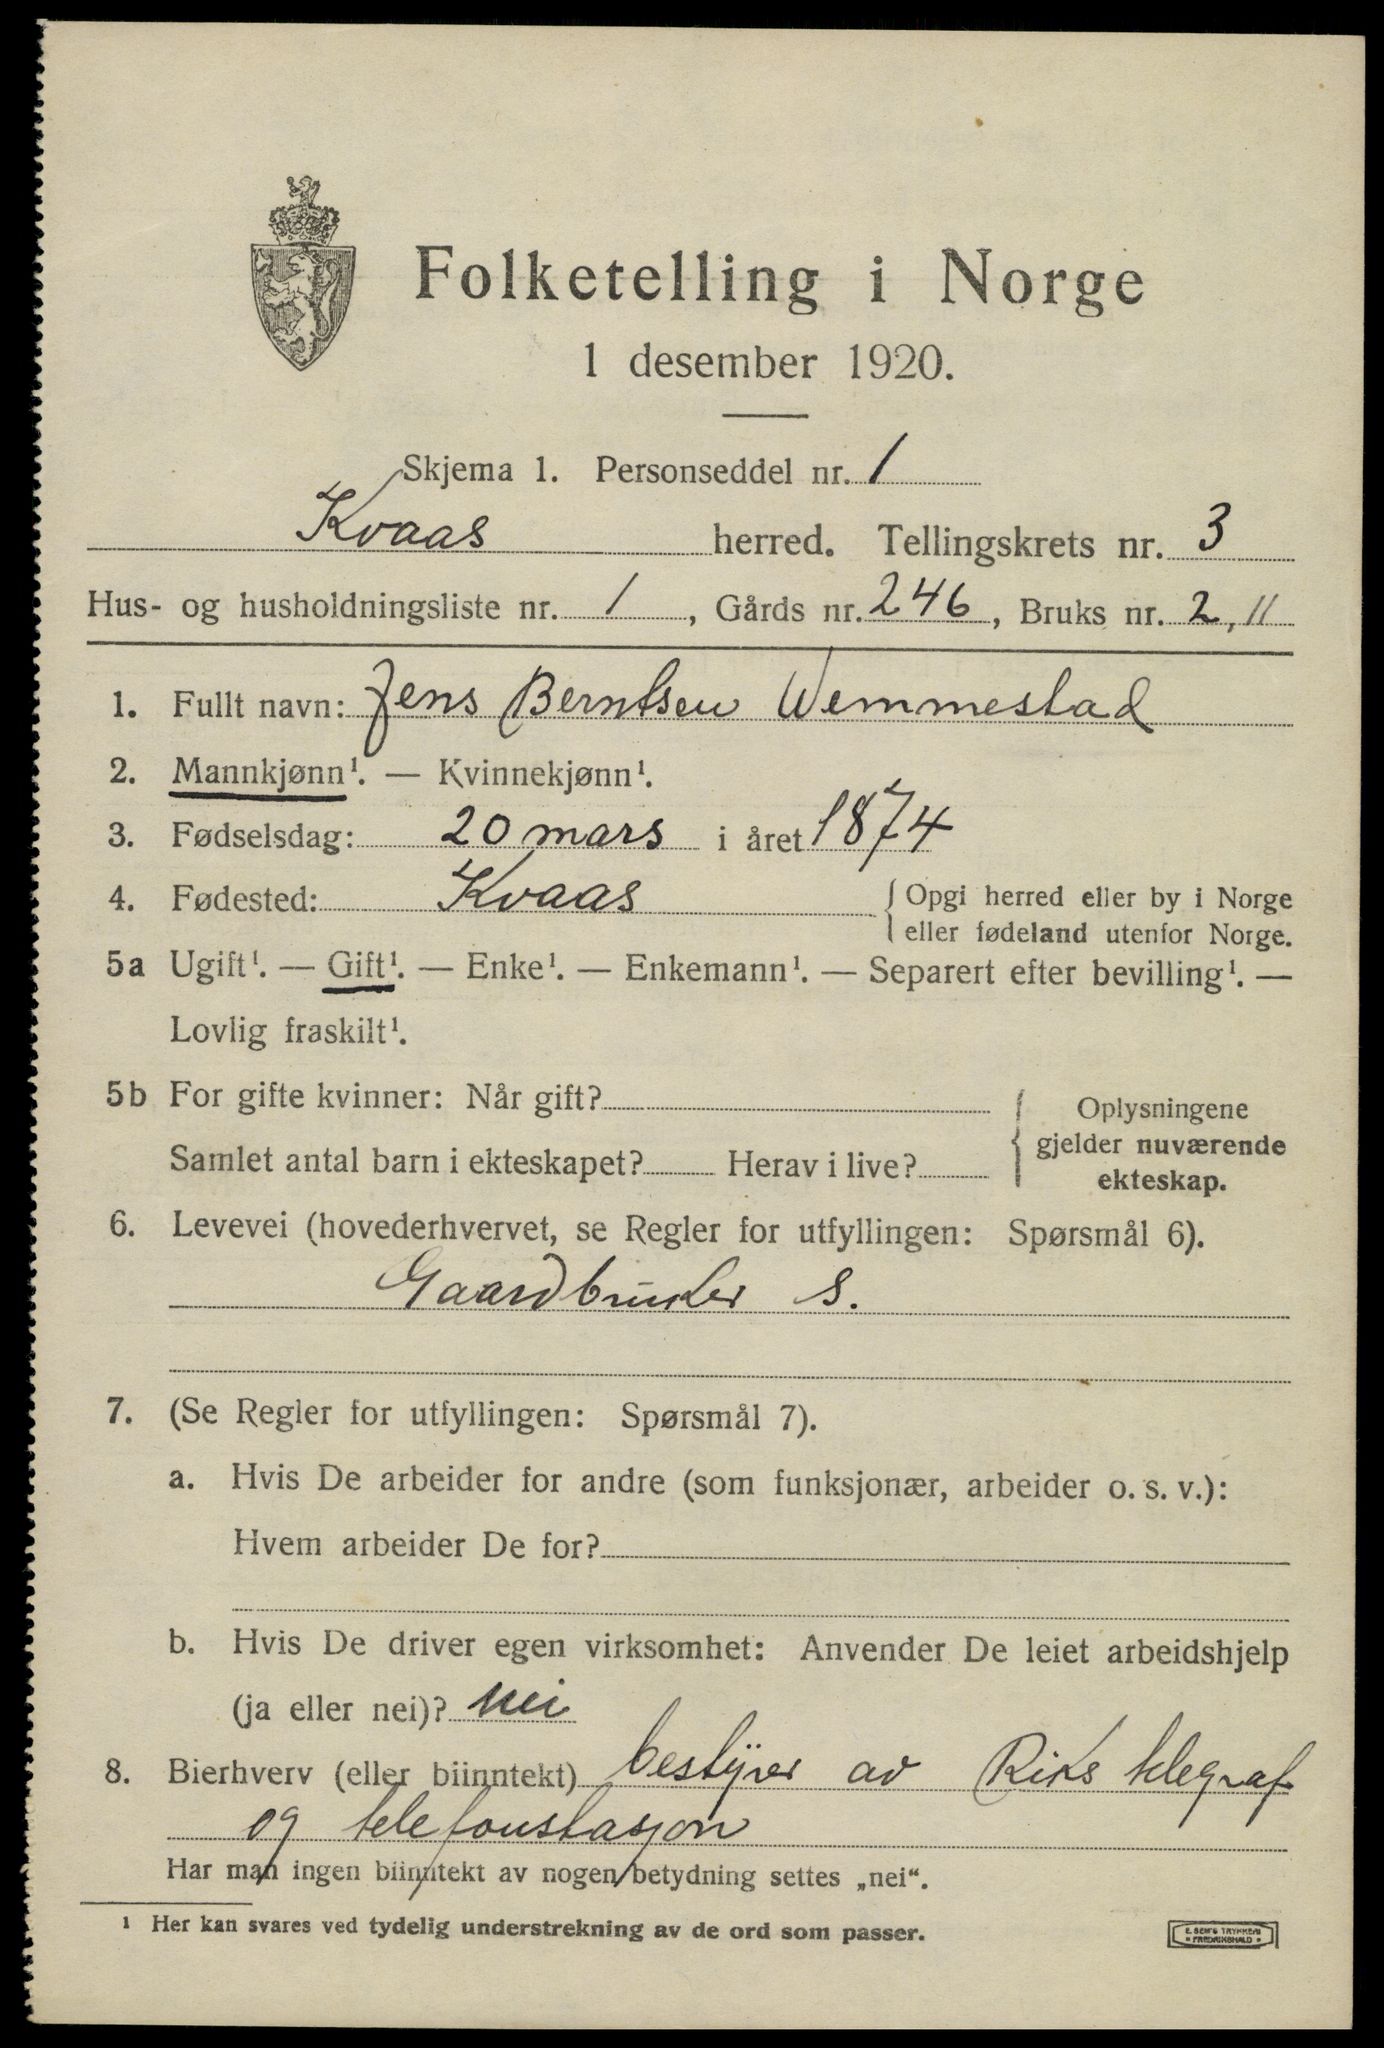 Folketelling i Norge
1 desember 1920.
Skjema 1. Personseddel nr. 1
Kvaas herred. Tellingskrets nr. 3
Hus- og husholdningsliste nr. 1, Gårds nr. 246, Bruks nr. 2, 11
1. Fullt navn: Jens Berntsen Wemmestad
2. Mannkjønn¹. — Kvinnekjønn¹.
3. Fødselsdag: 20 mars i året 1874
4. Fødested: Kvaas {Opgi herred eller by i Norge
eller fødeland utenfor Norge.
5a Ugift¹. — Gift¹. — Enke¹. — Enkemann¹. — Separert efter bevilling¹. —
Lovlig fraskilt¹.
5b For gifte kvinner: Når gift? { Oplysningene
gjelder nuværende
Samlet antal barn i ekteskapet? Herav i live? ekteskap.
6. Levevei (hovederhvervet, se Regler for utfyllingen: Spørsmål 6).
Gaardbruker S.
7. (Se Regler for utfyllingen: Spørsmål 7).
a. Hvis De arbeider for andre (som funksjonær, arbeider o. s. v.):
Hvem arbeider De for?
b. Hvis De driver egen virksomhet: Anvender De leiet arbeidshjelp
(ja eller nei)? nei
8. Bierhverv (eller biinntekt) bestyrer av Riks telegraf
og telefonstasjon
Har man ingen biinntekt av nogen betydning settes „nei“.
¹ Her kan svares ved tydelig understrekning av de ord som passer.
E. SEM'S TRYKKERI
FREDRIKSHALD